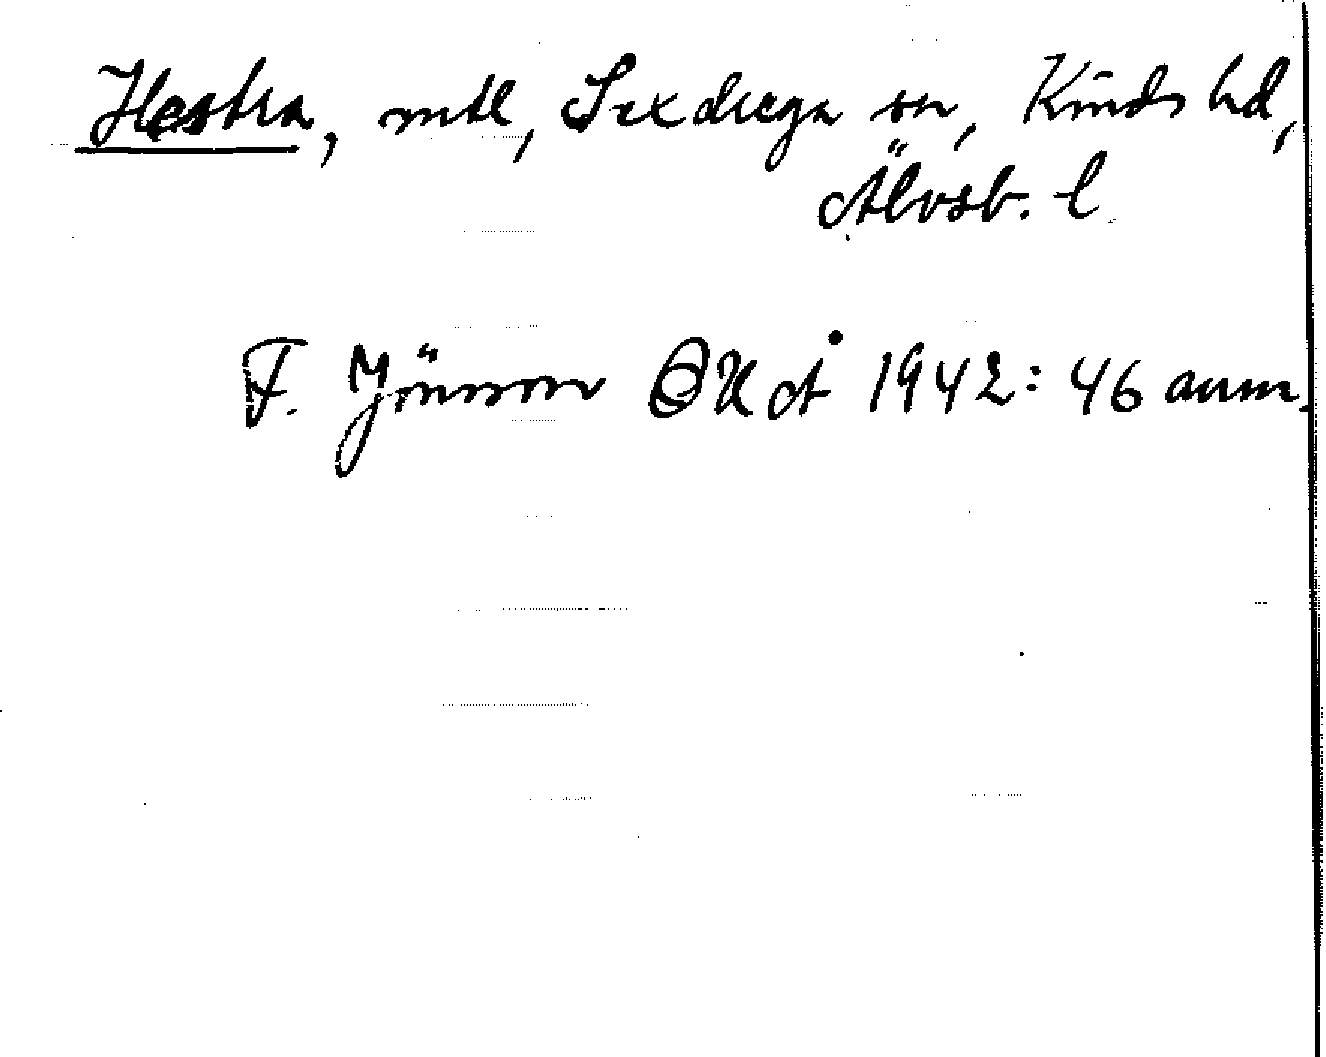 Hestra, mtl, Sexdrega sn, Kinds hd,
Älvsb. l
F. Jönsson 1942: 46 anm.